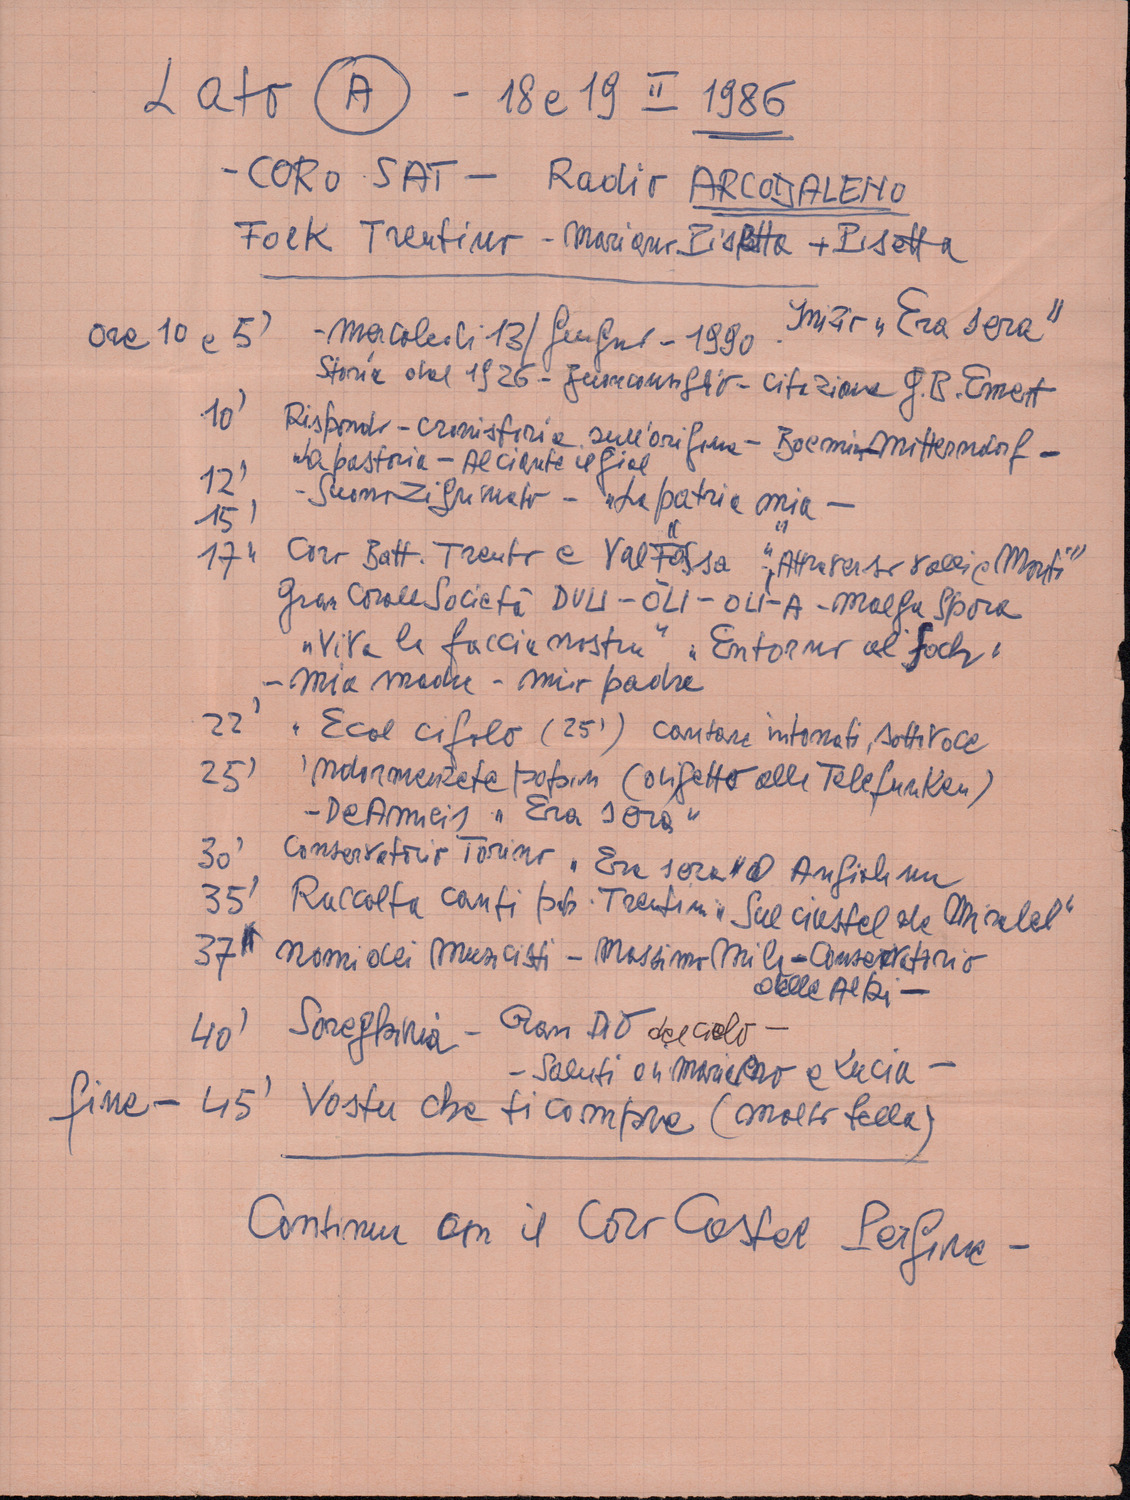 Lato A - 18 e 19 II 1986
- CORO SAT - Radio ARCOBALENO
Folk Trentino - Mariano Pisetta + Pisetta
ore 10 e 5' - mercoledi 13/ Giugno - 1990. Inizio "Era sera"
Storia dal 1926 - - citazione G.B. Emert
10' Rispondo - cronistoria sull'origine - Boemia Mitterndorf -
"La pastoria - Al ciante il gial
12' - Suono Zigurato - "La patria mia -
15'
17" Coro Batt. Trento e Val Fassa "Attraverso valli e Monti"
Gran Corale Società DULI - OLI - OLI - A - Malga Spora
"Viva la faccia nostra" "Entorno al foch"
- Mia madre - mio padre
22' "E col cifolo (25') cantare intonati, sottovoce
25' 'ndormenzete popin ( alla Telefunken)
- De Amicis "Era sera"
30' Conservatorio Torino "Era sera" o Angiolina
35' Raccolta canti pop. Trentini "Sul ciastel de Mirabel"
37" nomi dei Musicisti - Massimo Mila - Conservatorio
delle Alpi -
40' Soreghina - Gran Dio del cielo -
- Saluti di Mariano e Lucia -
fine - 45' Vostu che ti compre (molto bella)
Continua con il Coro Castel Pergine -